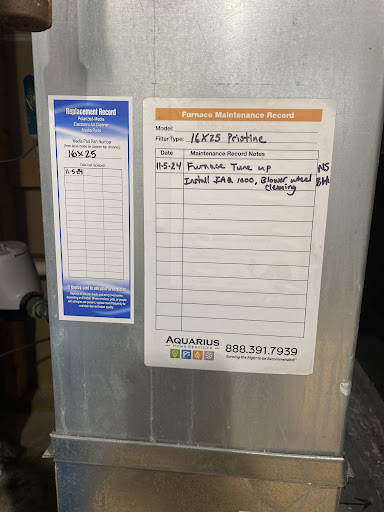 Replacement Record
Polarized-Media
Electronic Air Cleaner
Media Pads
Media Pad Part Number
16x25
Date last replaced:
11-5-24
Furnace Maintenance Record
Model:
Filter Type: 16x25 Pristine
Date Maintenance Record Notes
11-5-24 Furnace Tune up NS
Install IAQ 1000, Blower wheel BH
cleaning
AQUARIUS
HOME SERVICES
888.391.7939
Earning the Right to be Recommended!